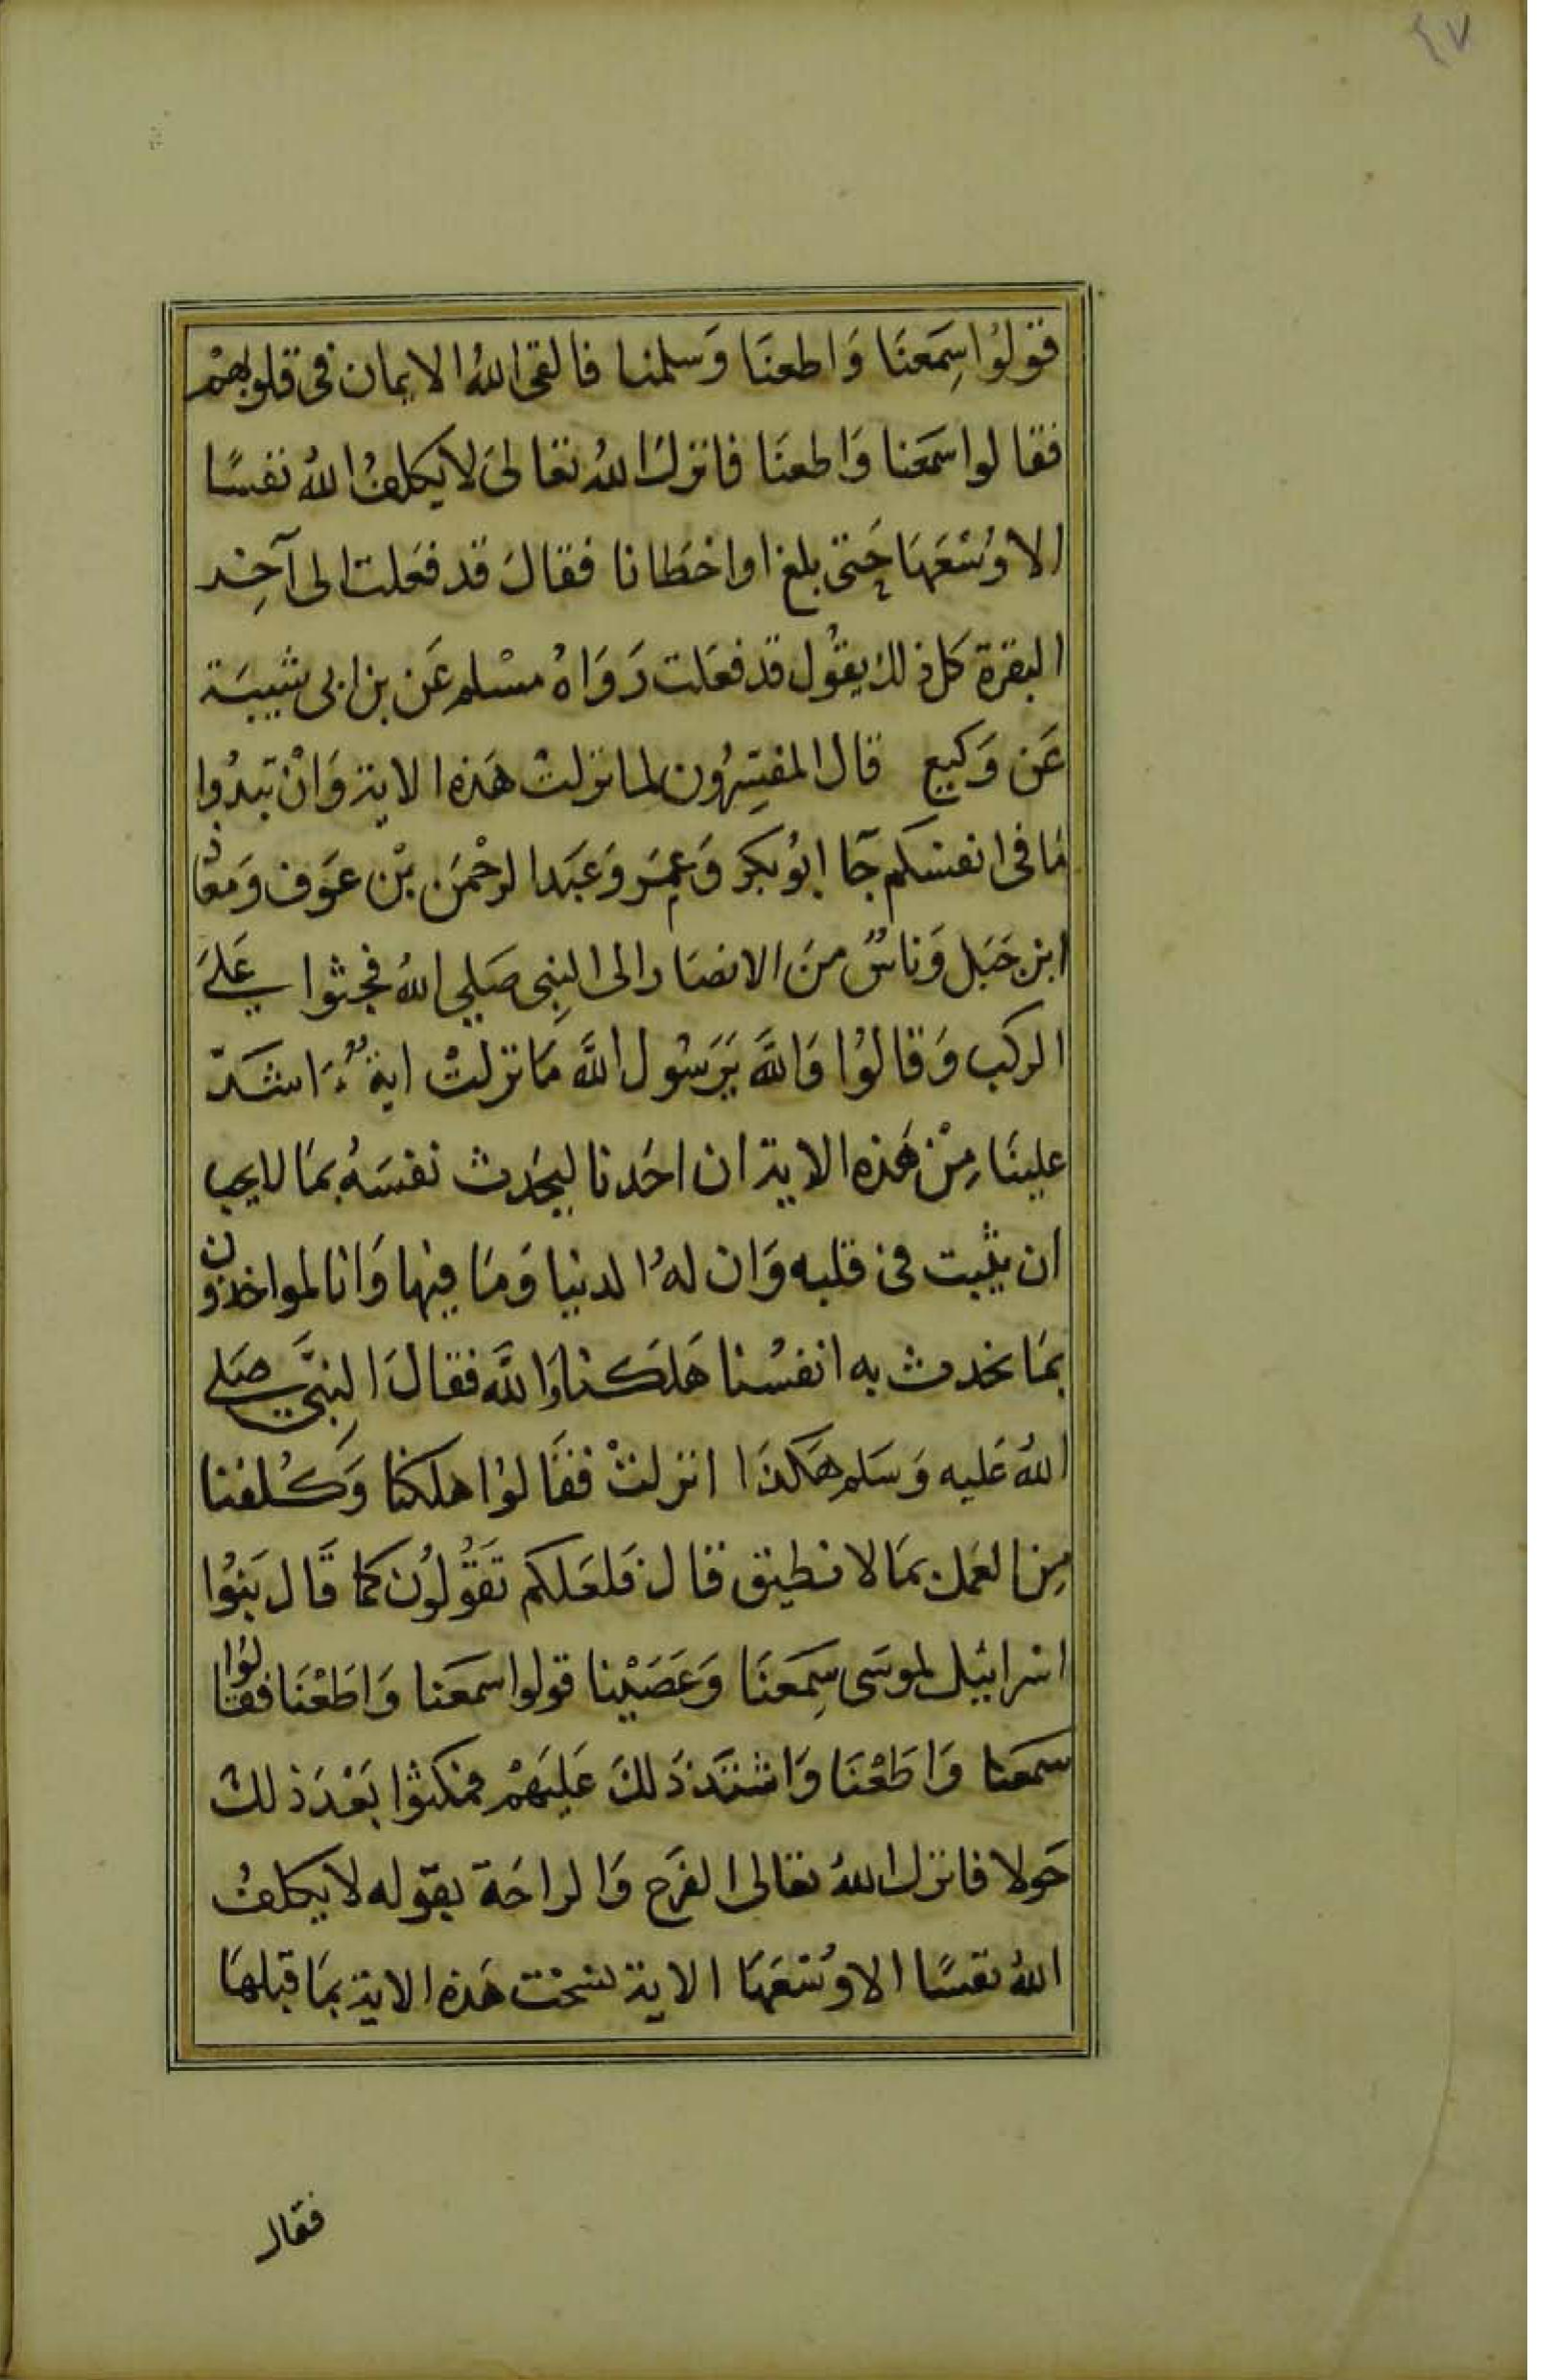 ٤٧
قولوا سمعنا واطعنا وسلمنا فالقى الله الايمان فى قلوبهم
فقالوا سمعنا واطعنا فانزل الله تعالى لا يكلف الله نفسًا
الا وسعها حتى بلغ او اخطانا فقال قد فعلت الى آخر
البقرة كل ذلك يقول قد فعلت رواه مسلم عن بن ابى شيبة
عن وكيع قال المفسرون لما نزلت هذه الاية وان تبدوا
ما فى انفسكم جآ ابو بكر وعمر وعبد الرحمن بن عوف ومعاذ
ابن جبل وناسٌ من الانصار الى النبى صلي الله فجثوا على
الركب وقالوا والله يرسول الله ما نزلت اية اشدّ
علينا من هذه الاية ان احدنا ليحدث نفسه بما لا يحب
ان يثبت فى قلبه وان له الدنيا وما فيها وانا لمواخذون
بما نحدث به انفسنا هلكنا والله فقال النبى صلى
الله عليه وسلم هكذا انزلت فقالوا هلكنا وكلفنا
من العمل بما لا نطيق قال فلعلكم تقولون كما قال بنوا
اسرائيل لموسى سمعنا وعصينا قولوا سمعنا واطعنا فقالوا
سمعنا واطعنا واشتد ذلك عليهم فمكثوا بعد ذلك
حولا فانزل الله تعالى الفرج والراحة بقوله لا يكلف
الله نفسًا الا وسعها الاية نسخت هذه الاية بما قبلها
فقال